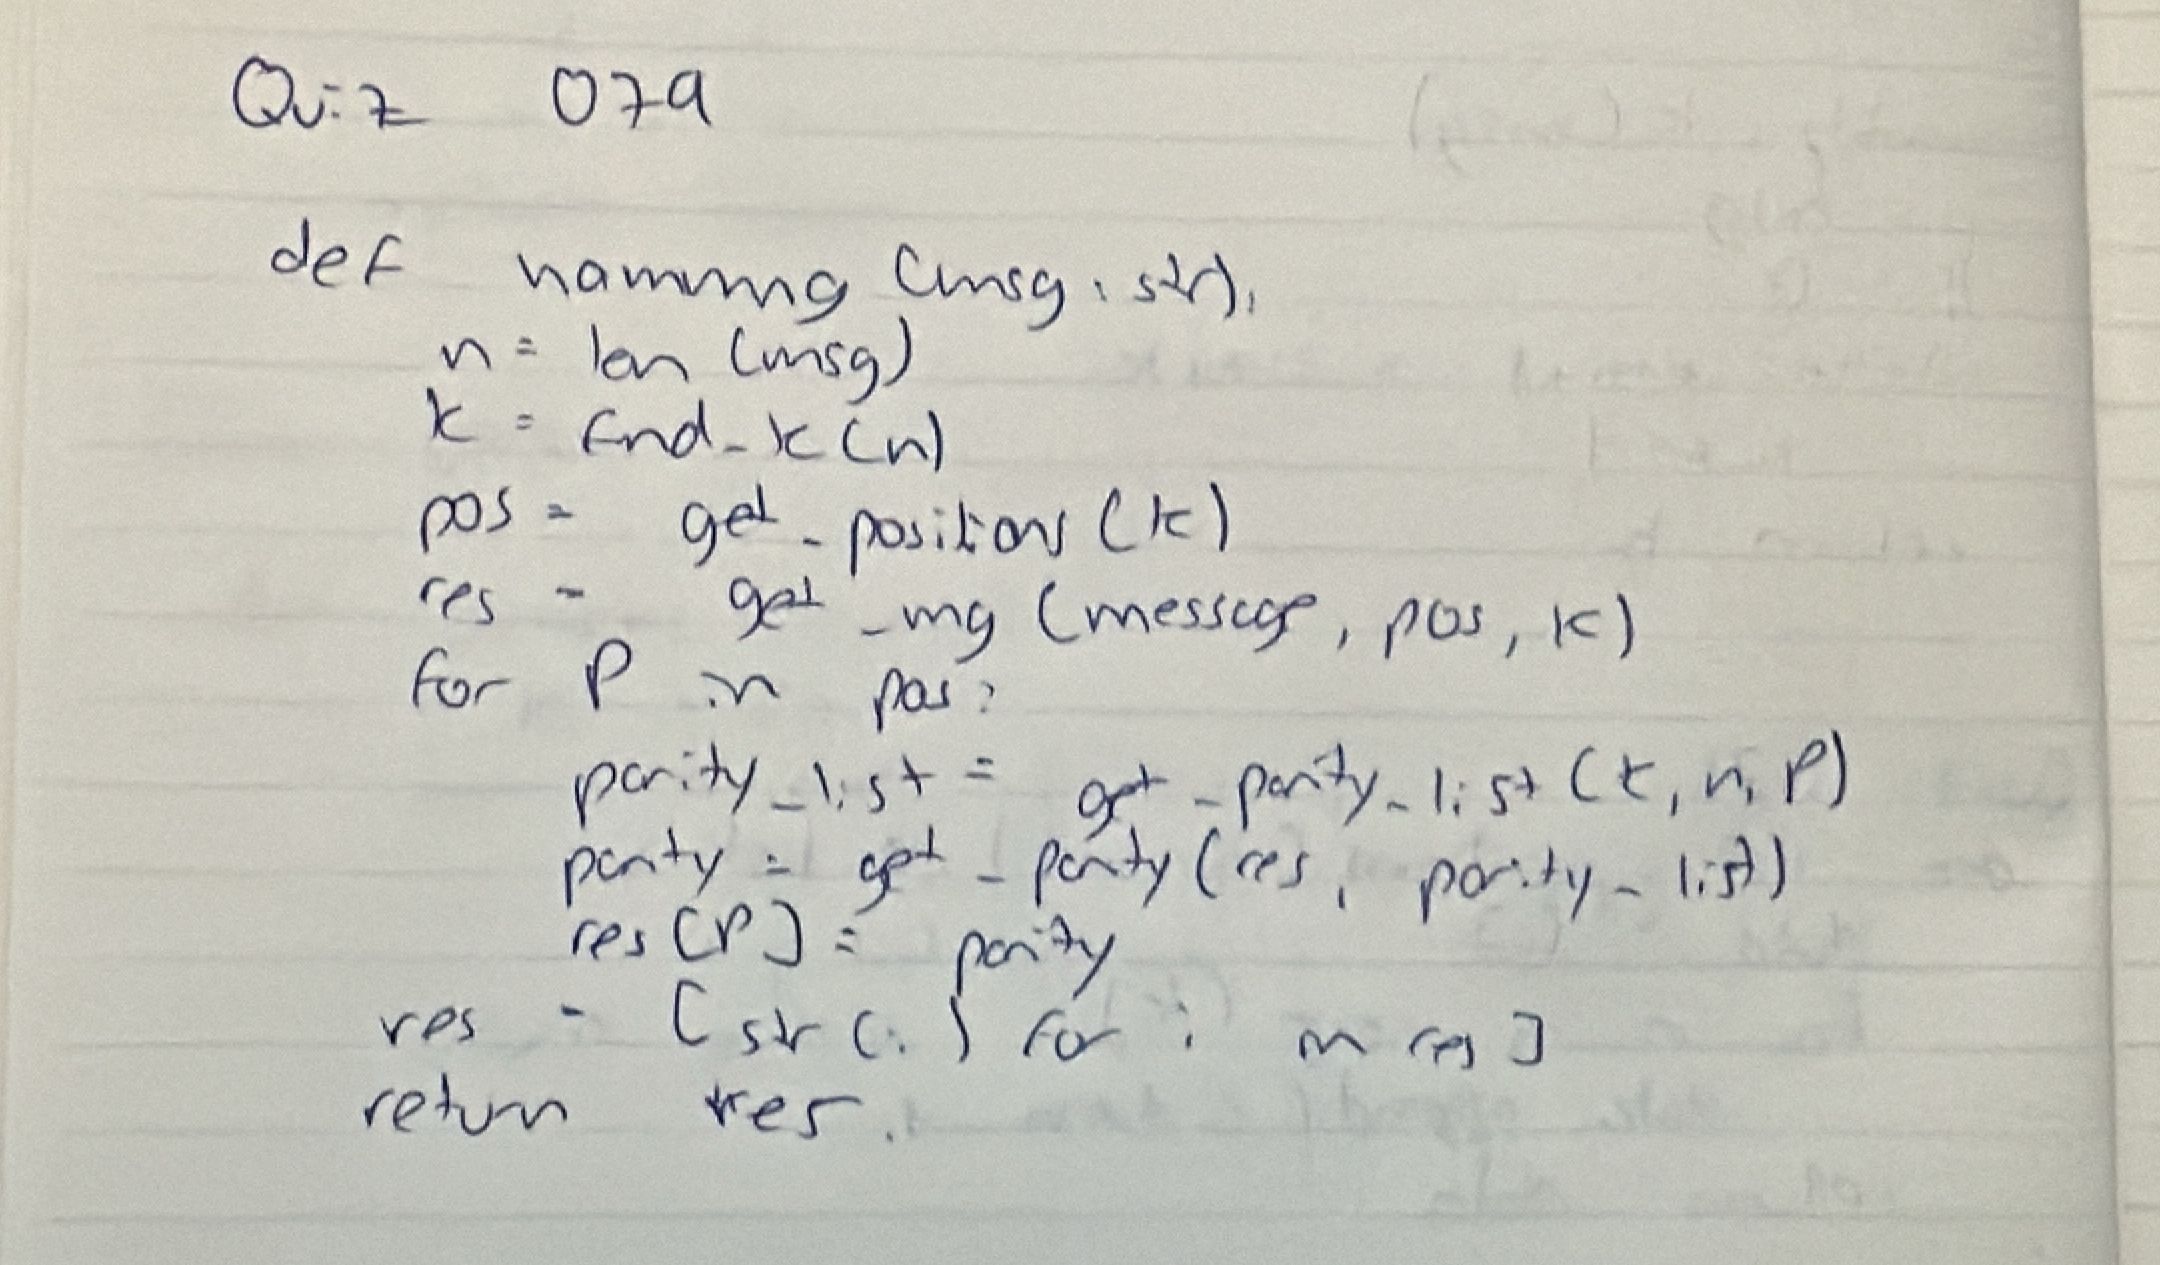 Quiz 079
def hamming (msg: str):
n = len (msg)
k = find_k(n)
pos = get_positions (k)
res = get_mg (message, pos, k)
for P in pos:
parity_list = get_parity_list (k, n, P)
parity = get_parity (res, parity_list)
res [P] = parity
res = [str (i) for i in res]
return res.